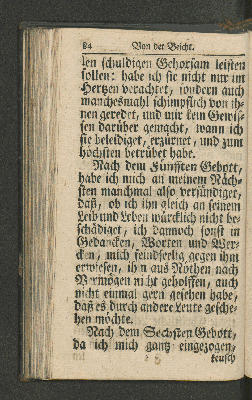 84 Von der Beicht.
len schuldigen Gehorsam leisten
sollen: habe ich sie nicht nur im
Hertzen verachtet, sondern auch
manchesmahl schimpflich von ih-
nen geredet, und mir kein Gewis-
sen darüber gemacht, wann ich
sie beleidiget, erzürnet, und zum
höchsten betrübet habe.
Nach dem Fünfften Gebott,
habe ich mich an meinem Näch-
sten manchmal also versündiget,
daß, ob ich ihn gleich an seinem
Leib und Leben würcklich nicht be-
schädiget, ich dannoch sonst in
Gedancken, Worten und Wer-
cken, mich feindseelig gegen ihm
erwiesen, ihn aus Nöthen nach
Vermögen nicht geholffen, auch
nicht einmal gern gesehen habe,
daß es durch andere Leute gesche-
hen möchte.
Nach dem Sechsten Gebott,
da ich mich gantz eingezogen,
keusch